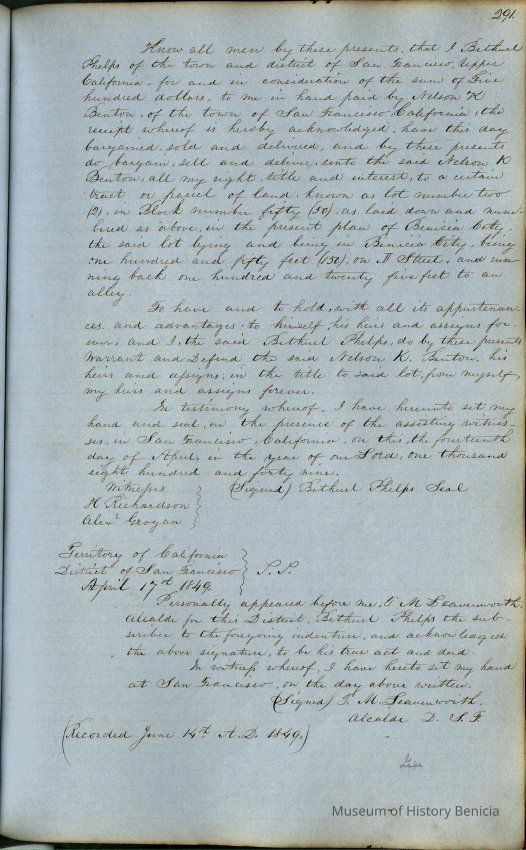 291.
Know all men by these presents, that I Bethuel
Phelps of the town and district of San Francisco, Upper
California, for and in consideration of the sum of Five
hundred dollars, to me in hand paid by Nelson K
Benton, of the town of San Francisco California, the
receipt whereof is hereby acknowledged, have this day
bargained, sold and delivered, and by these presents
do bargain, sell and deliver, unto the said Nelson K
Benton, all my right, title and interest, to a certain
tract, or parcel of land, known as lot number two
(2), in Block number fifty (50), as laid down and num-
bered as above, in the present plan of Benicia City,
the said lot lying and being in Benicia City, being
one hundred and fifty feet (150), on Street, and run-
ning back one hundred and twenty five feet to an
alley.
To have and to hold, with all its appurtenan-
ces, and advantages, to himself, his heirs and assigns for-
ever, and I, the said Bethuel Phelps, do by these presents
Warrant and Defend, the said Nelson K. Benton, his
heirs and assigns, in the title to said lot, from myself,
my heirs and assigns forever.
In testimony whereof, I have hereunto set my
hand and seal, in the presence of the assisting witnes-
ses, in San Francisco, California, on this, the fourteenth
day of April, in the year of our Lord, one thousand
eight hundred and forty nine.
Witnesses (Signed) Bethuel Phelps Seal
H Richardson
Alexr Grogan
Territory of California
District of San Francisco } S.S.
April 17th 1849.
Personally appeared before me, T M Leavenworth,
Alcalde for this District, Bethuel Phelps the sub-
scriber to the foregoing indenture, and acknowledged
the above signature, to be his true act and deed.
In witness whereof, I have hereto set my hand
at San Francisco, on the day above written.
(Signed) T. M. Leavenworth.
Alcalde D. S. F.
(Recorded June 14th A.D. 1849.)
Museum of History Benicia